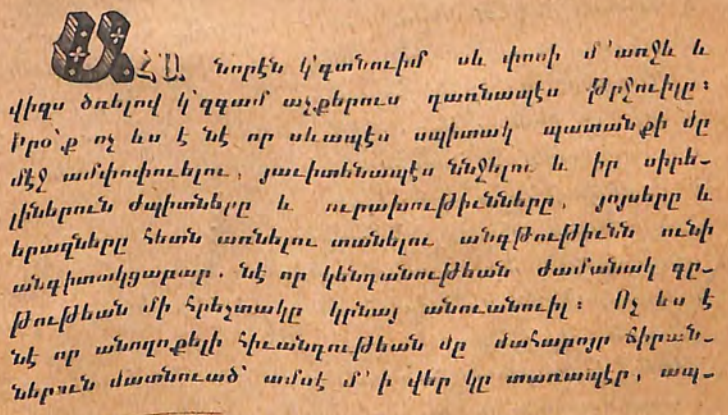 ԱՀԱ նորէն կ՚գտնուիմ սև փոսի մ՚առջև և
վիզս ծռելով կ՚զգամ աչքերուս դառնապէս թրջուիլը։
Իրօ՞ք ոչ ևս է նէ որ սևապէս սպիտակ պատանքի մը
մէջ ամփոփուելու, յաւիտենապէս ննջելու և իր սիրե-
լիներուն ժպիտները և ուրախութիւնները, յոյսերը և
երազները հետն առնելու տանելու անգթութիւնն ունի
անգիտակցաբար. նէ որ կենդանութեան ժամանակ գը-
թութեան մի հրեշտակը կրնայ անուանուիլ։ Ոչ ևս է
նէ որ անողոքելի հիւանդութեան մը մահաբոյր ճիրան-
ներուն մատնուած՝ ամսէ մ՚ ի վեր կը տառապէր, ապ-